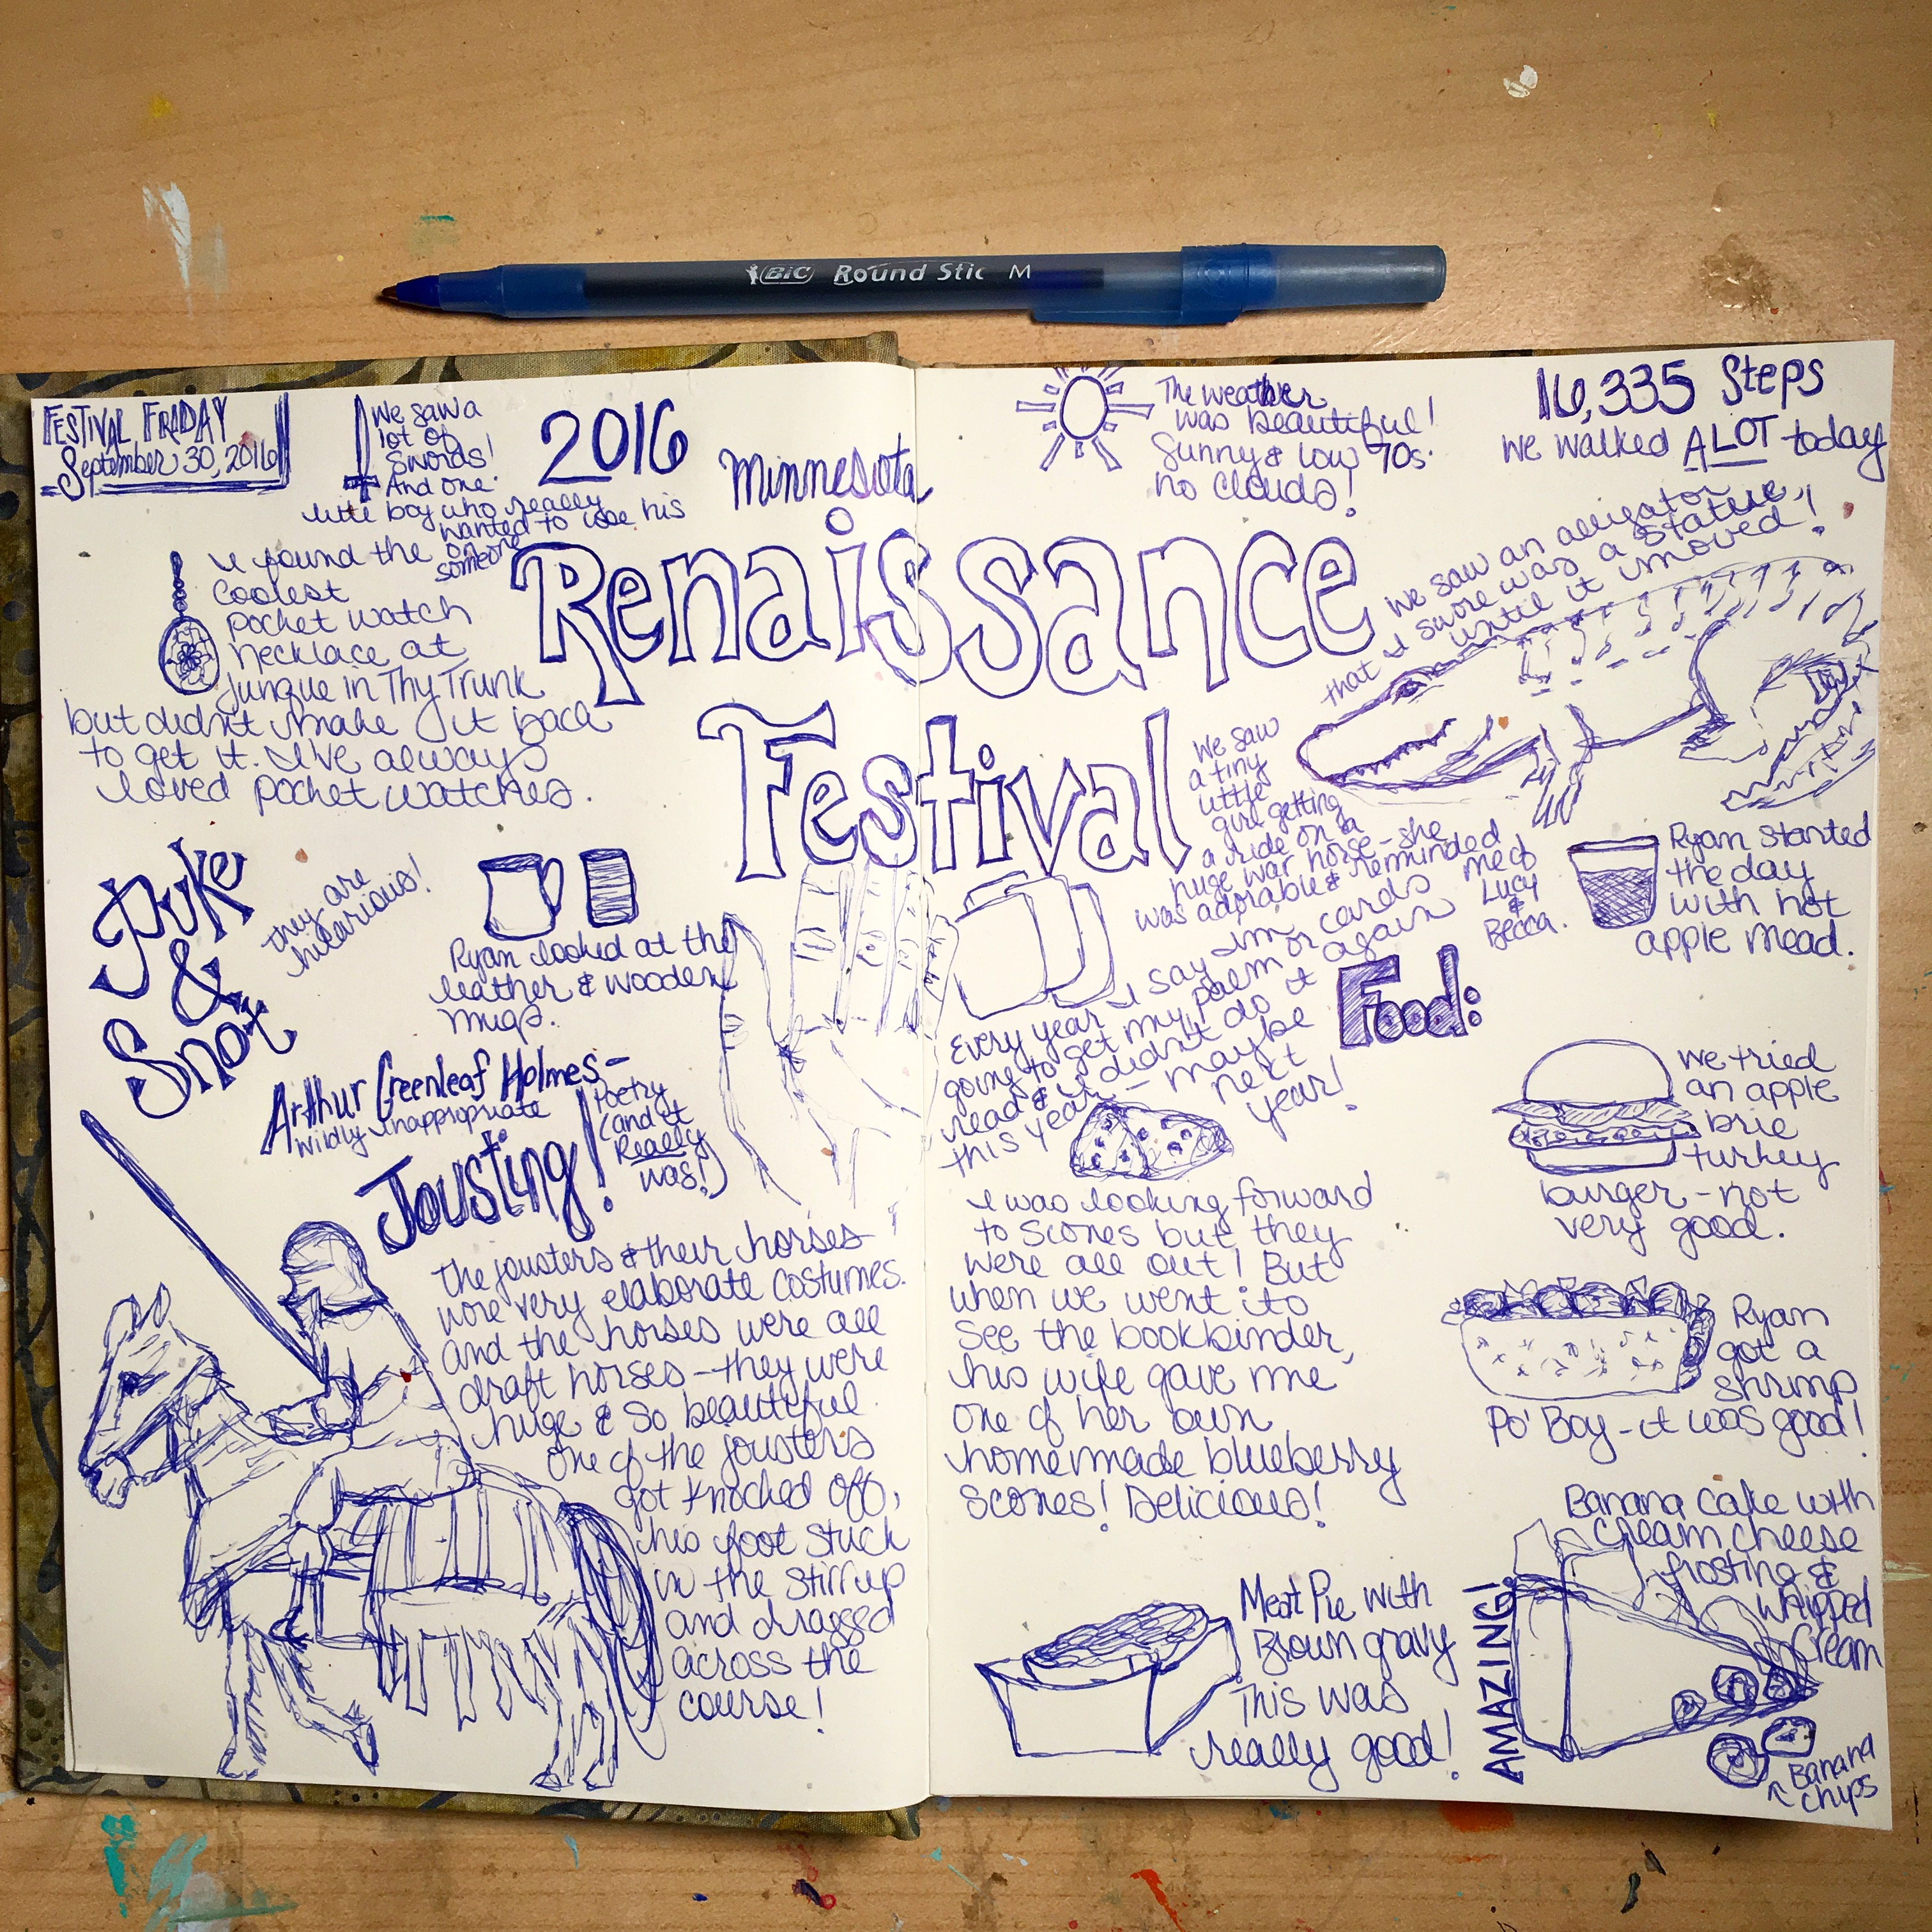 BIC Round Stic M
FESTIVAL FRIDAY
September 30, 2016
We saw a
lot of
swords!
And one
little boy who really
wanted to use his
on
someone
2016
Minnesota
Renaissance
Festival
I found the
coolest
pocket watch
necklace at
Junque in Thy Trunk
but didn't make it back
to get it. I've always
loved pocket watches.
Puke
&
Snot
they are
hilarious!
Ryan looked at the
leather & wooden
mugs.
Arthur Greenleaf Holmes-
wildly inappropriate
Poetry
(and it
Really
was!)
Jousting!
The jousters & their horses
wore very elaborate costumes.
and the horses were all
draft horses - they were
huge & so beautiful.
One of the jousters
got knocked off,
his foot stuck
in the stirrup
and dragged
across the
course!
The weather
was beautiful!
Sunny & low 70s.
no clouds!
16,335 Steps
We walked A LOT today
We saw an alligator
that I swore was a statue,
until it moved!
We saw
a tiny
little
girl getting
a ride on a
huge war horse - she
was adorable & reminded
me of
Lucy
&
Becca.
Every year I say I'm
going to get my palm or cards
read & I didn't do it again
this year - maybe
next
year!
I was looking forward
to scones but they
were all out! But
when we went ito
see the bookbinder,
his wife gave me
one of her own
homemade blueberry
scones! Delicious!
Food:
Ryan started
the day
with hot
apple mead.
We tried
an apple
brie
turkey
burger - not
very good.
Ryan
got a
shrimp
Po' Boy - it was good!
Meat Pie with
Brown gravy
This was
really good!
Banana Cake with
Cream cheese
frosting &
whipped
Cream
AMAZING!
Banana
chips